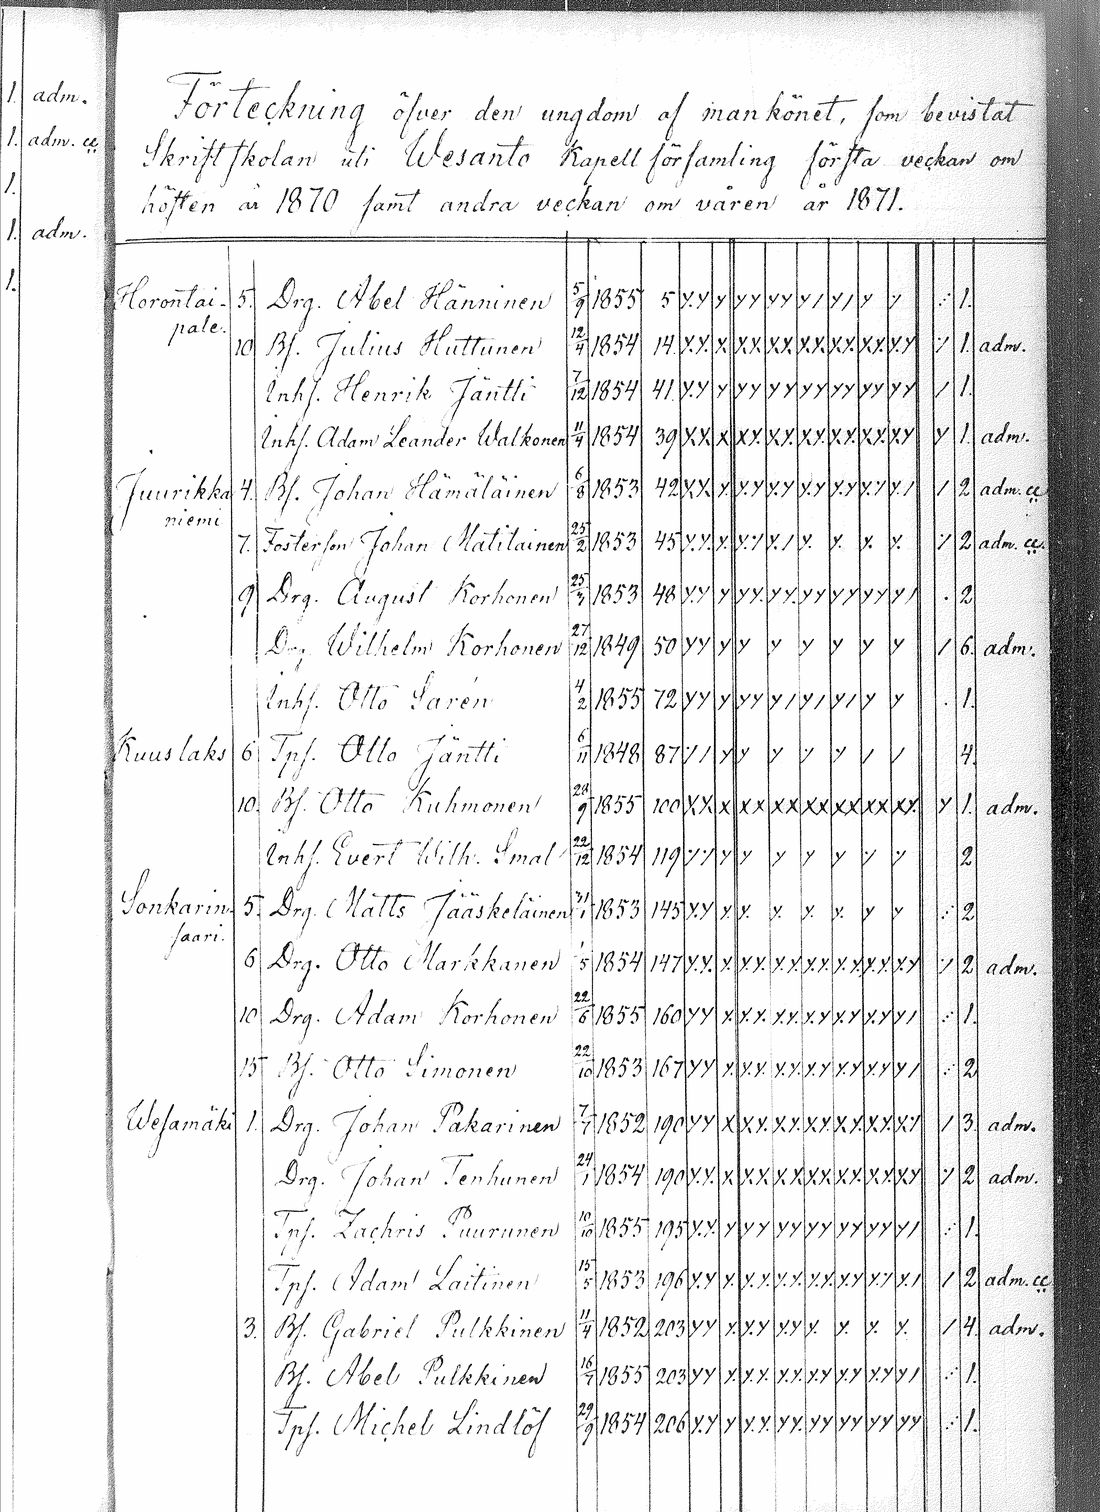 1. adm.
1. adm. cc
1.
1. adm.
1.
Förteckning öfver den ungdom af mankönet, som bevistat
Skriftskolan uti Wesanto Kapellförsamling första veckan om
hösten år 1870 samt andra veckan om våren år 1871.
Horontai- 5. Drg. Abel Hänninen 5/9 1855 5 1.
pale.
10 Bs. Julius Huttunen 12/4 1854 14 1. adm.
Inhs. Henrik Jäntti 7/12 1854 41 1.
Inhs. Adam Leander Walkonen 11/4 1854 39 1. adm.
Juurikka 4. Bs. Johan Hämäläinen 6/8 1853 42 2 adm. cc
niemi
7. Fosterson Johan Matilainen 25/2 1853 45 2 adm. cc.
9 Drg. August Korhonen 25/3 1853 48 2
Drg. Wilhelm Korhonen 27/12 1849 50 6. adm.
Inhs. Otto Sarén 4/2 1855 72 1.
Kuuslaks 6 Tps. Otto Jäntti 6/11 1848 87 4.
10. Bs. Otto Kuhmonen 28/9 1855 100 1. adm.
Inhs. Evert Wilh. Smal 22/12 1854 119 2
Sonkarin- 5. Drg. Matts Jääskeläinen 31/1 1853 145 2
saari.
6 Drg. Otto Markkanen 1/5 1854 147 2 adm.
10 Drg. Adam Korhonen 22/6 1855 160 1.
15 Bs. Otto Simonen 22/10 1853 167 2
Wesamäki 1. Drg. Johan Pakarinen 7/7 1852 190 3. adm.
Drg. Johan Tenhunen 24/1 1854 190 2 adm.
Tps. Zachris Puurunen 10/10 1855 195 1.
Tps. Adam Laitinen 15/5 1853 196 2 adm. cc
3. Bs. Gabriel Pulkkinen 11/4 1852 203 4. adm.
Bs. Abel Pulkkinen 16/7 1855 203 1.
Tps. Michel Lindlöf 29/9 1854 206 1.